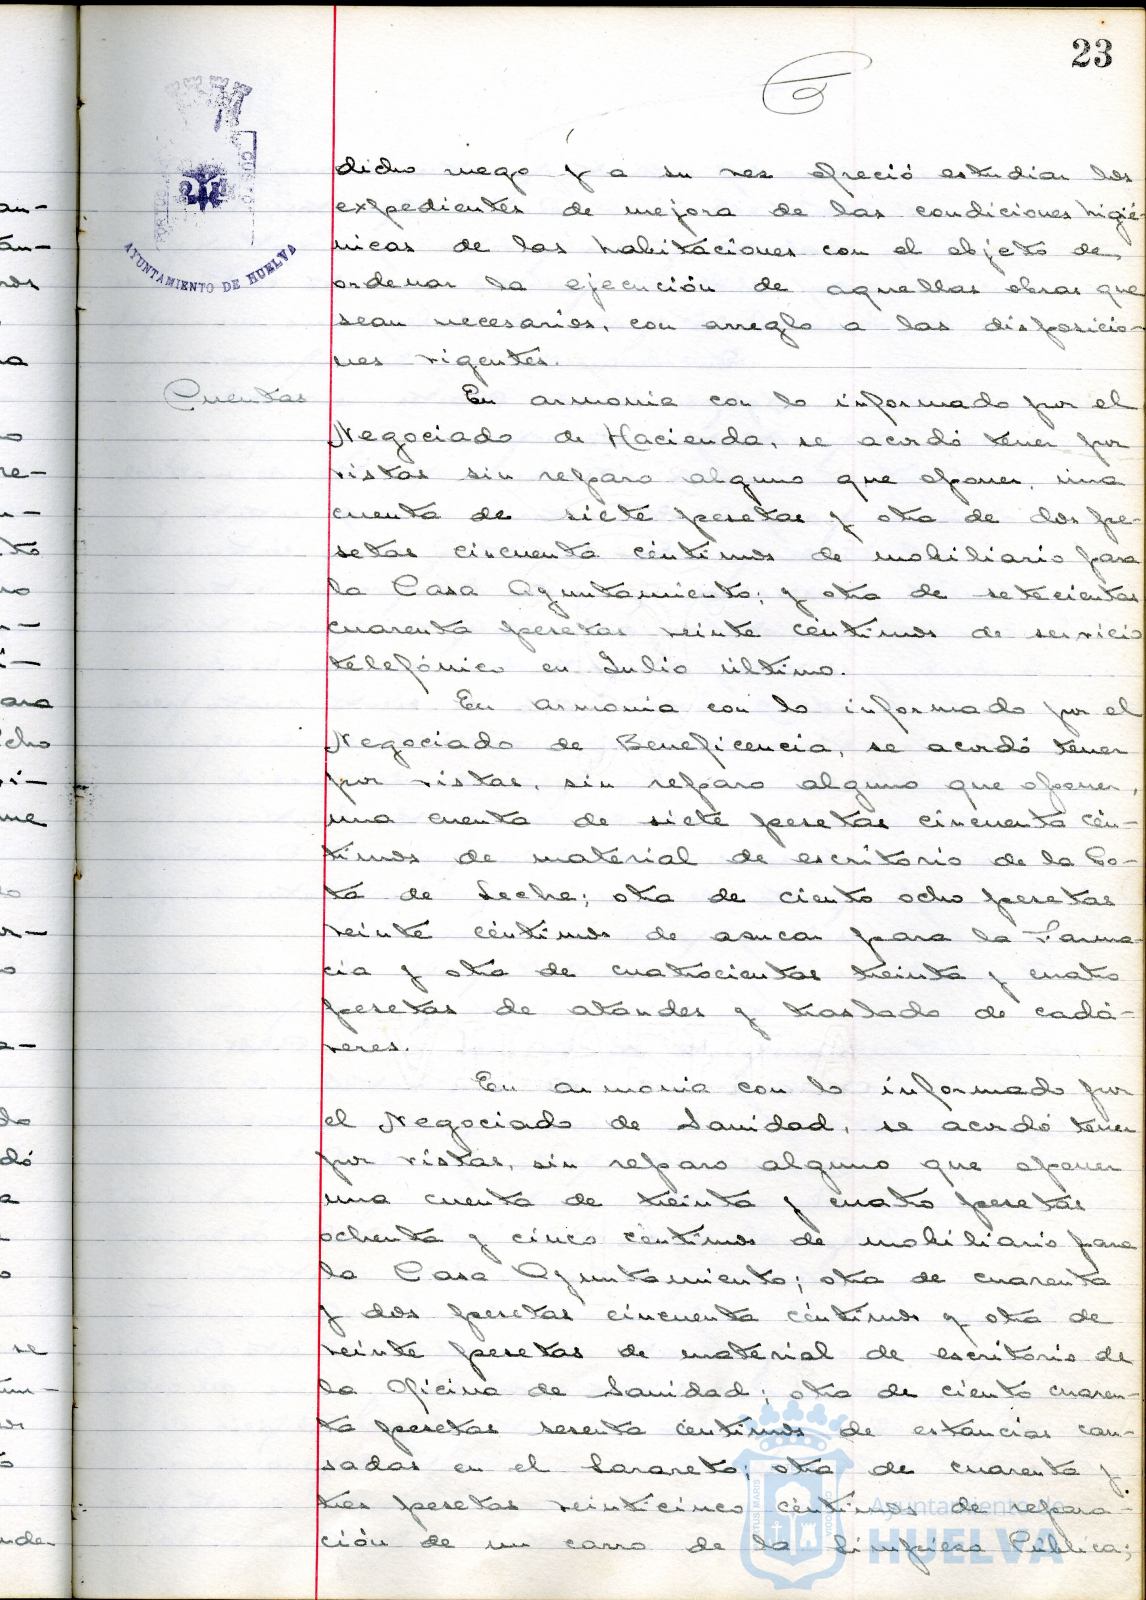 23
AYUNTAMIENTO DE HUELVA
dicho ruego y a su vez ofreció estudiar los
expedientes de mejora de las condiciones higié-
nicas de las habitaciones con el objeto de
ordenar la ejecución de aquellas obras que
sean necesarios, con arreglo a las disposicio-
nes vigentes.
Cuentas
En armonia con lo informado por el
Negociado de Hacienda, se acordó tener por
vistas sin reparo alguno que oponer, una
cuenta de siete pesetas y otra de dos pe-
setas cincuenta céntimos de mobiliario para
la Casa Ayuntamiento; y otra de setecientas
cuarenta pesetas veinte céntimos de servicio
telefónico en Julio último.
En armonia con lo informado por el
Negociado de Beneficencia, se acordó tener
por vistas, sin reparo alguno que oponer,
una cuenta de siete pesetas cincuenta cén-
timos de material de escritorio de la Go-
ta de Leche; otra de ciento ocho pesetas
veinte céntimos de azucar para la Farma-
cia y otra de cuatrocientas treinta y cuatro
pesetas de ataudes y traslado de cadá-
veres.
En armonia con lo informado por
el Negociado de Sanidad, se acordó tener
por vistas, sin reparo alguno que oponer
una cuenta de treinta y cuatro pesetas
ochenta y cinco centimos de mobiliario para
la Casa Ayuntamiento; otra de cuarenta
y dos pesetas cincuenta céntimos y otra de
veinte pesetas de material de escritorio de
la Oficina de Sanidad; otra de ciento cuaren-
ta pesetas sesenta céntimos de estancias cau-
sadas en el Lazareto; otra de cuarenta y
tres pesetas veinticinco céntimos de repara-
ción de un carro de la Limpieza Pública;
Ayuntamiento de
HUELVA